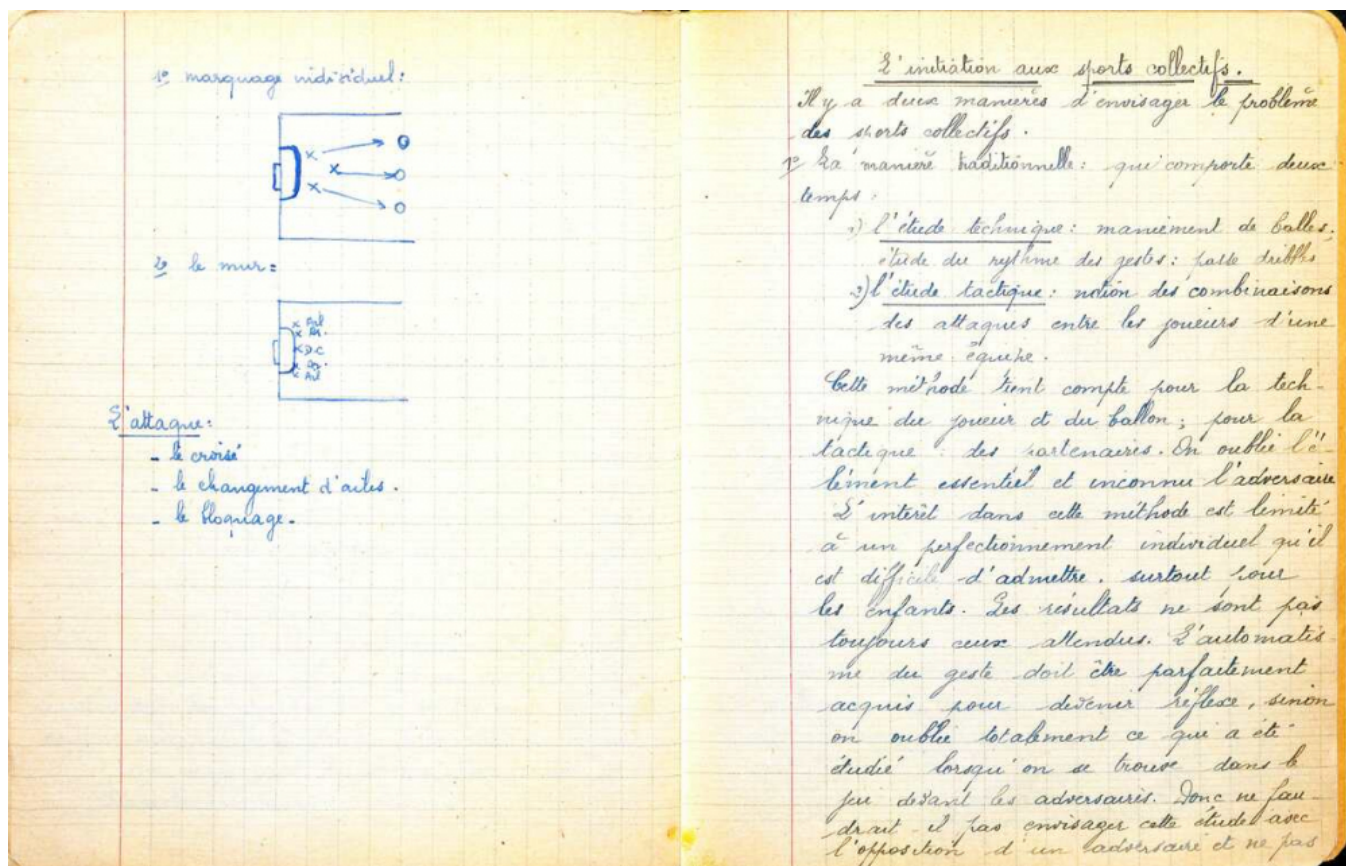 1º marquage individuel:
2º le mur:
Ail
Ar.
D.C
Ar.
Ail
L'attaque:
- le croisé
- le changement d'ailes.
- le bloquage.
L'initiation aux sports collectifs.
Il y a deux manières d'envisager le problème
des sports collectifs.
1º La manière traditionnelle: qui comporte deux
temps.
1) l'étude technique: maniement de balles,
étude du rythme des gestes: passe dribbles
2) l'étude tactique: notion des combinaisons
des attaques entre les joueurs d'une
même équipe.
Cette méthode tient compte pour la tech-
nique du joueur et du ballon; pour la
tactique: des partenaires. On oublie l'é-
lément essentiel et inconnu l'adversaire
L'intérêt dans cette méthode est limité
à un perfectionnement individuel qu'il
est difficile d'admettre. surtout pour
les enfants. Les résultats ne sont pas
toujours ceux attendus. L'automatis-
me du geste doit être parfaitement
acquis pour devenir réflexe, sinon
on oublie totalement ce qui a été
étudié lorsqu'on se trouve dans le
jeu devant les adversaires. Donc ne fau-
drait-il pas envisager cette étude avec
l'opposition d'un adversaire et ne pas